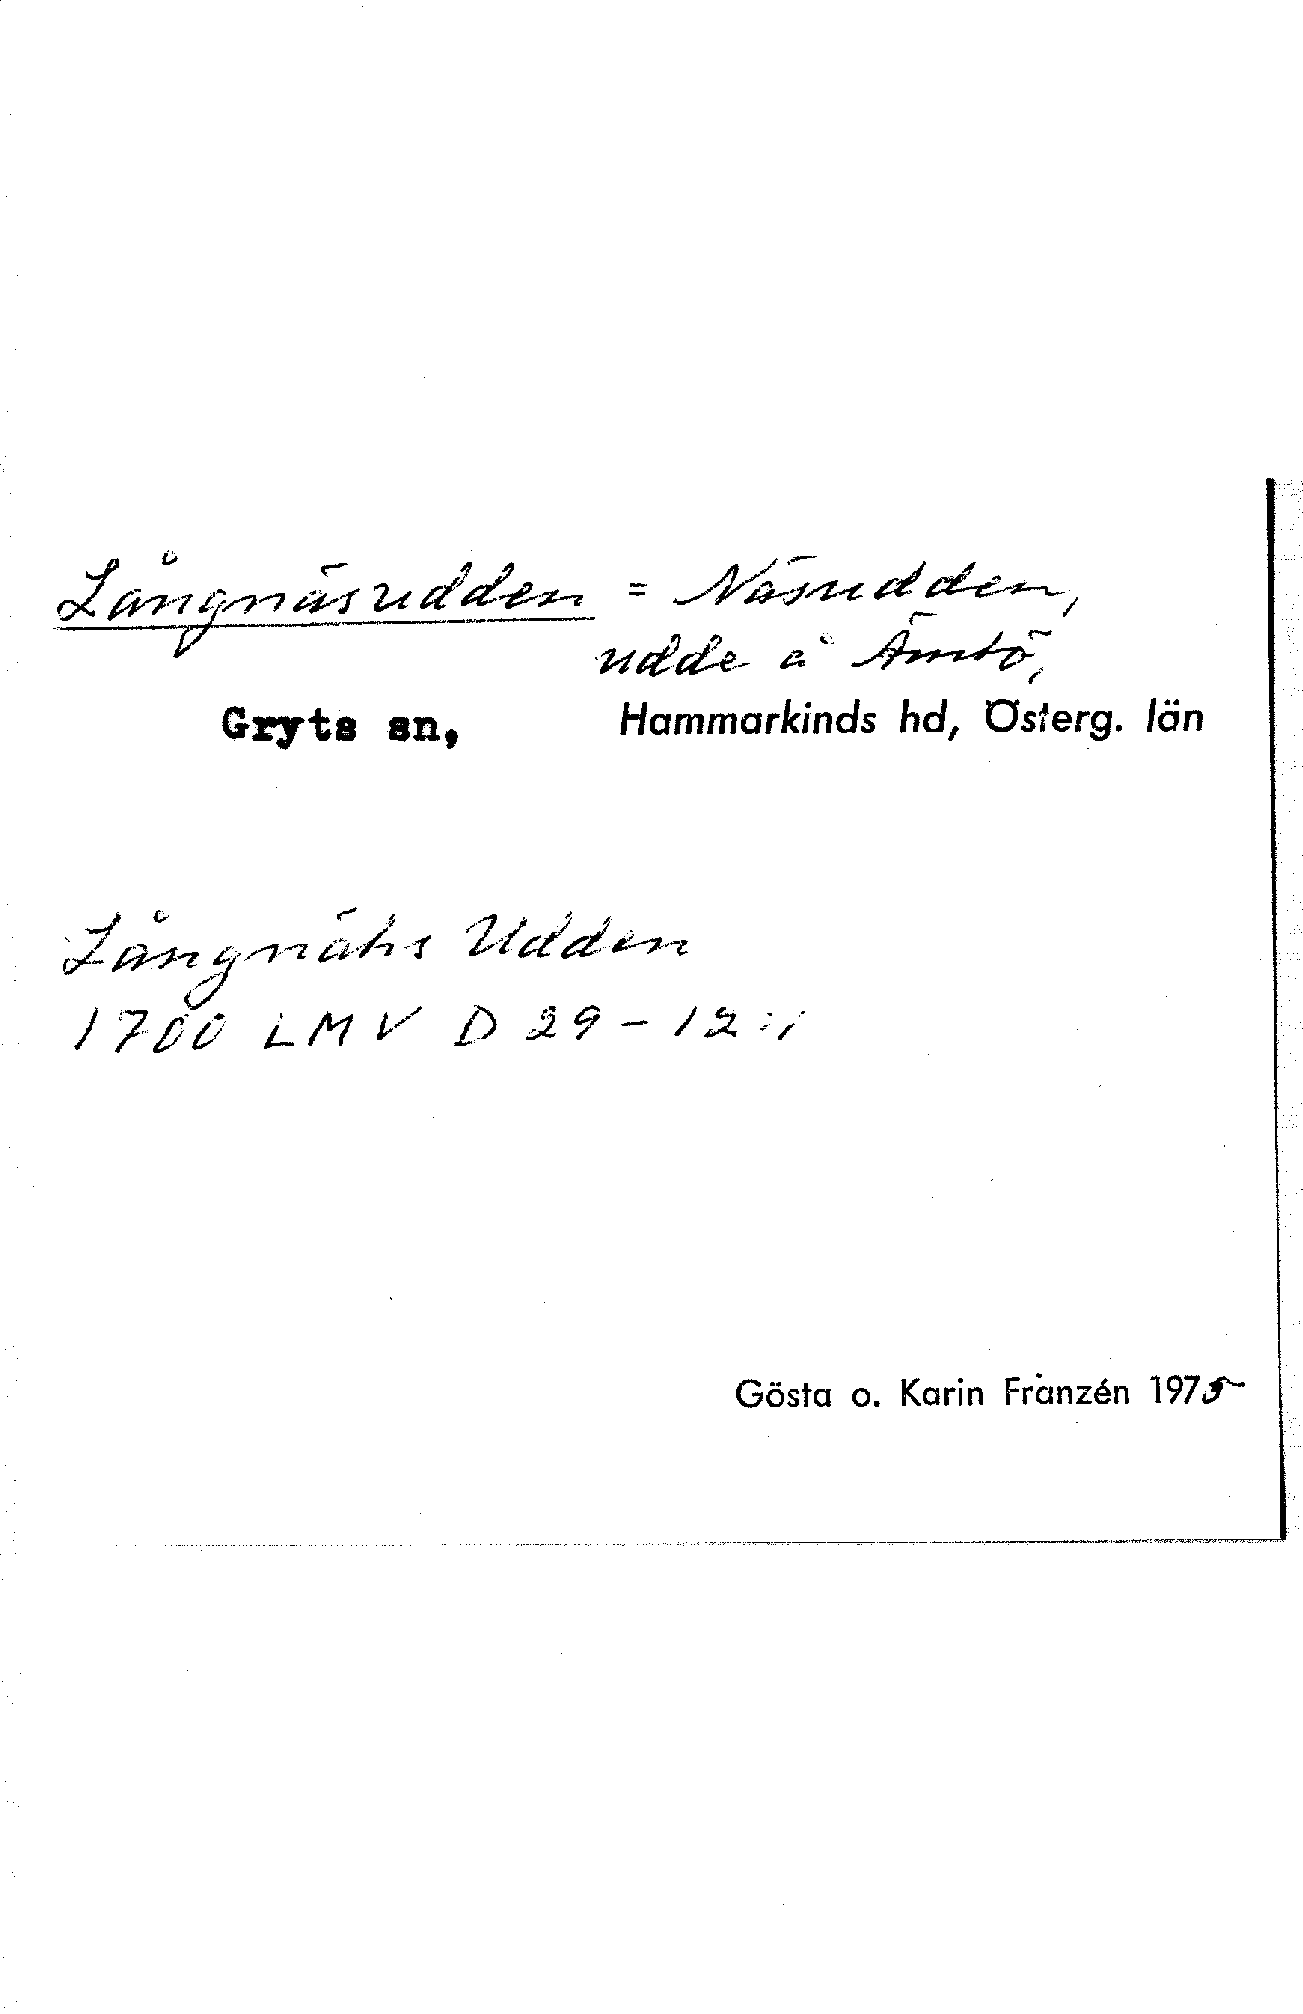 Långnäsudden = Näsudden,
udde å Ämtö,
Gryts sn, Hammarkinds hd, Österg. län
Långnähs Udden
1700 LMV D 29-12:1
Gösta o. Karin Franzén 1975